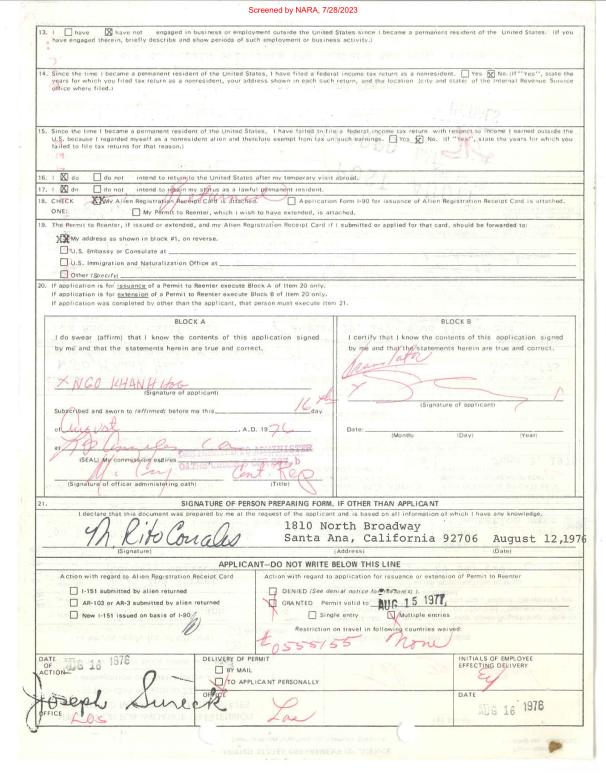 Screened by NARA, 7/28/2023
13. I ☐ have ☒ have not engaged in business or employment outside the United States since I became a permanent resident of the United States. (If you
have engaged therein, briefly describe and show periods of such employment or business activity.)
14. Since the time I became a permanent resident of the United States, I have filed a federal income tax return as a nonresident. ☐ Yes ☒ No. (If "Yes", state the
years for which you filed tax return as a nonresident, your address shown in each such return, and the location (city and state) of the Internal Revenue Service
office where filed.)
15. Since the time I became a permanent resident of the United States, I have failed to file a federal income tax return with respect to income I earned outside the
U.S. because I regarded myself as a nonresident alien and therefore exempt from tax on such earnings. ☐ Yes ☒ No. (If "Yes", state the years for which you
failed to file tax returns for that reason.)
16. I ☒ do ☐ do not intend to return to the United States after my temporary visit abroad.
17. I ☒ do ☐ do not intend to retain my status as a lawful permanent resident.
18. CHECK XX My Alien Registration Receipt Card is attached. ☐ Application Form I-90 for issuance of Alien Registration Receipt Card is attached.
ONE: ☐ My Permit to Reenter, which I wish to have extended, is attached.
19. The Permit to Reenter, if issued or extended, and my Alien Registration Receipt Card if I submitted or applied for that card, should be forwarded to:
XX My address as shown in block #1, on reverse.
☐ U.S. Embassy or Consulate at
☐ U.S. Immigration and Naturalization Office at
☐ Other (Specify)
20. If application is for issuance of a Permit to Reenter execute Block A of Item 20 only.
If application is for extension of a Permit to Reenter execute Block B of Item 20 only.
If application was completed by other than the applicant, that person must execute Item 21.
BLOCK A
I do swear (affirm) that I know the contents of this application signed
by me and that the statements herein are true and correct.
X NGO KHANH HOA
(Signature of applicant)
Subscribed and sworn to (affirmed) before me this 16th day
of August, A.D. 1976
at Los Angeles Ca
(SEAL) My commission expires
(Signature of officer administering oath) (Title)
BLOCK B
I certify that I know the contents of this application signed
by me and that the statements herein are true and correct.
X
(Signature of applicant)
Date:
(Month) (Day) (Year)
21. SIGNATURE OF PERSON PREPARING FORM, IF OTHER THAN APPLICANT
I declare that this document was prepared by me at the request of the applicant and is based on all information of which I have any knowledge.
1810 North Broadway
M. Rito Corrales Santa Ana, California 92706 August 12, 1976
(Signature) (Address) (Date)
APPLICANT—DO NOT WRITE BELOW THIS LINE
Action with regard to Alien Registration Receipt Card
☐ I-151 submitted by alien returned
☐ AR-103 or AR-3 submitted by alien returned
☐ New I-151 issued on basis of I-90
Action with regard to application for issuance or extension of Permit to Reenter
☐ DENIED (See denial notice for reasons).
☒ GRANTED Permit valid to AUG 15 1977
☐ Single entry ☒ Multiple entries
Restriction on travel in following countries waived:
0555155 None
DATE
OF
ACTION AUG 16 1976
Joseph Sureck
OFFICE LOS
DELIVERY OF PERMIT
☐ BY MAIL
☒ TO APPLICANT PERSONALLY
OFFICE
Los
INITIALS OF EMPLOYEE
EFFECTING DELIVERY
DATE
AUG 16 1976